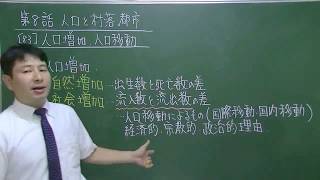 第8話 人口と村落、都市
[83]人口増加、人口移動
人口増加
自然増加…出生数と死亡数の差
社会増加…流入数と流出数の差
…人口移動によるもの(国際移動・国内移動)
経済的・宗教的・政治的理由